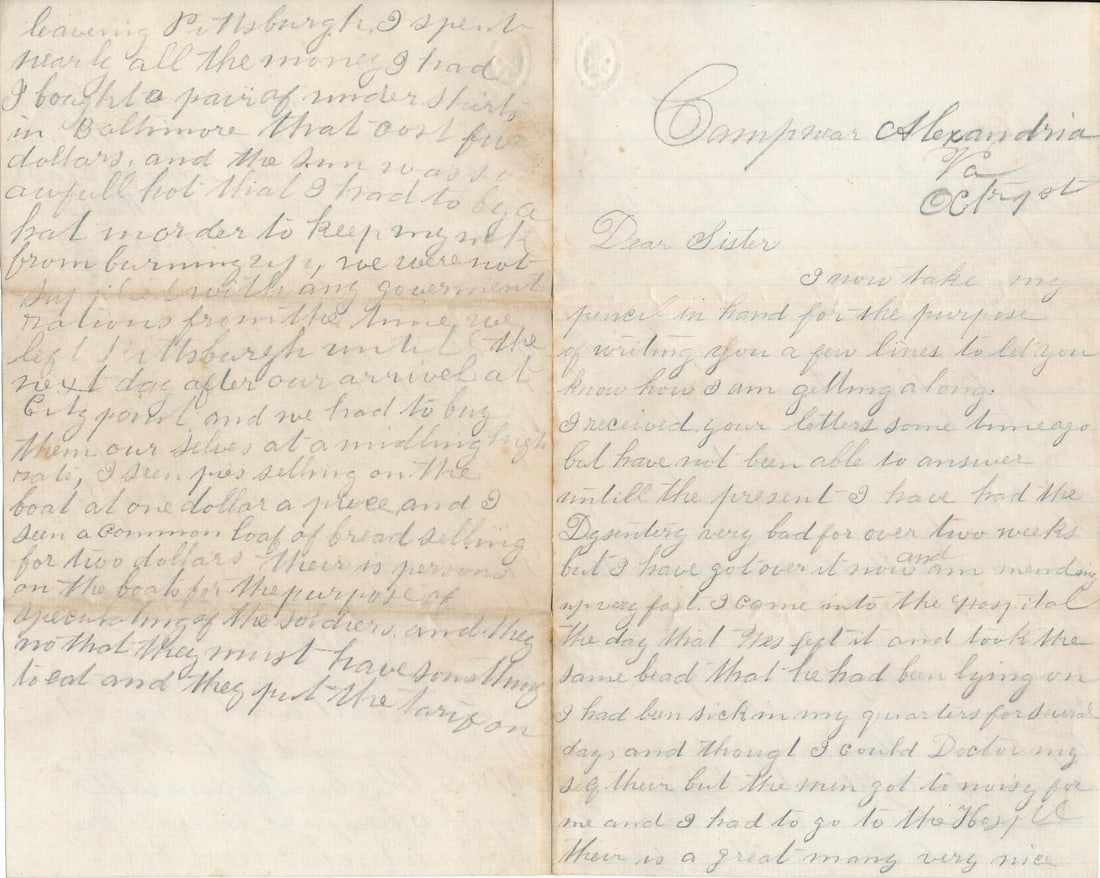 Camp near Alexandria
Va
Oct 1st
Dear Sister
I now take my
pencil in hand for the purpose
of writing you a few lines to let you
know how I am getting along.
I received your letters some time ago
but have not been able to answer
untill the present I have had the
Dysentery very bad for over two weeks
but I have got over it now and am mending
up very fast. I came into the Hospital
the day that Wes left it and took the
same bead that he had been lying on
I had been sick in my quarters for several
days and thougt I could Doctor my
self their but the men got to noisy for
me and I had to go to the Hospital
their is a great many very nice
leaving Pittsburgh, I spent
nearly all the money I had
I bought a pair of under shirts
in Baltimore that cost five
dollars, and the sun was so
awfull hot that I had to by a
hat in order to keep my neck
from burning up, we were not
supplied with any goverment
rations from the time we
left Pittsburgh until the
next day after our arrivel at
City point, and we had to buy
them our selves at a midling high
rate, I seen pies selling on the
boat at one dollar a piece, and I
seen a common loaf of bread selling
for two dollars their is persons
on the boats for the purpose of
speculating of the soldiers, and they
no that they must have something
to eat and they put the tarif on